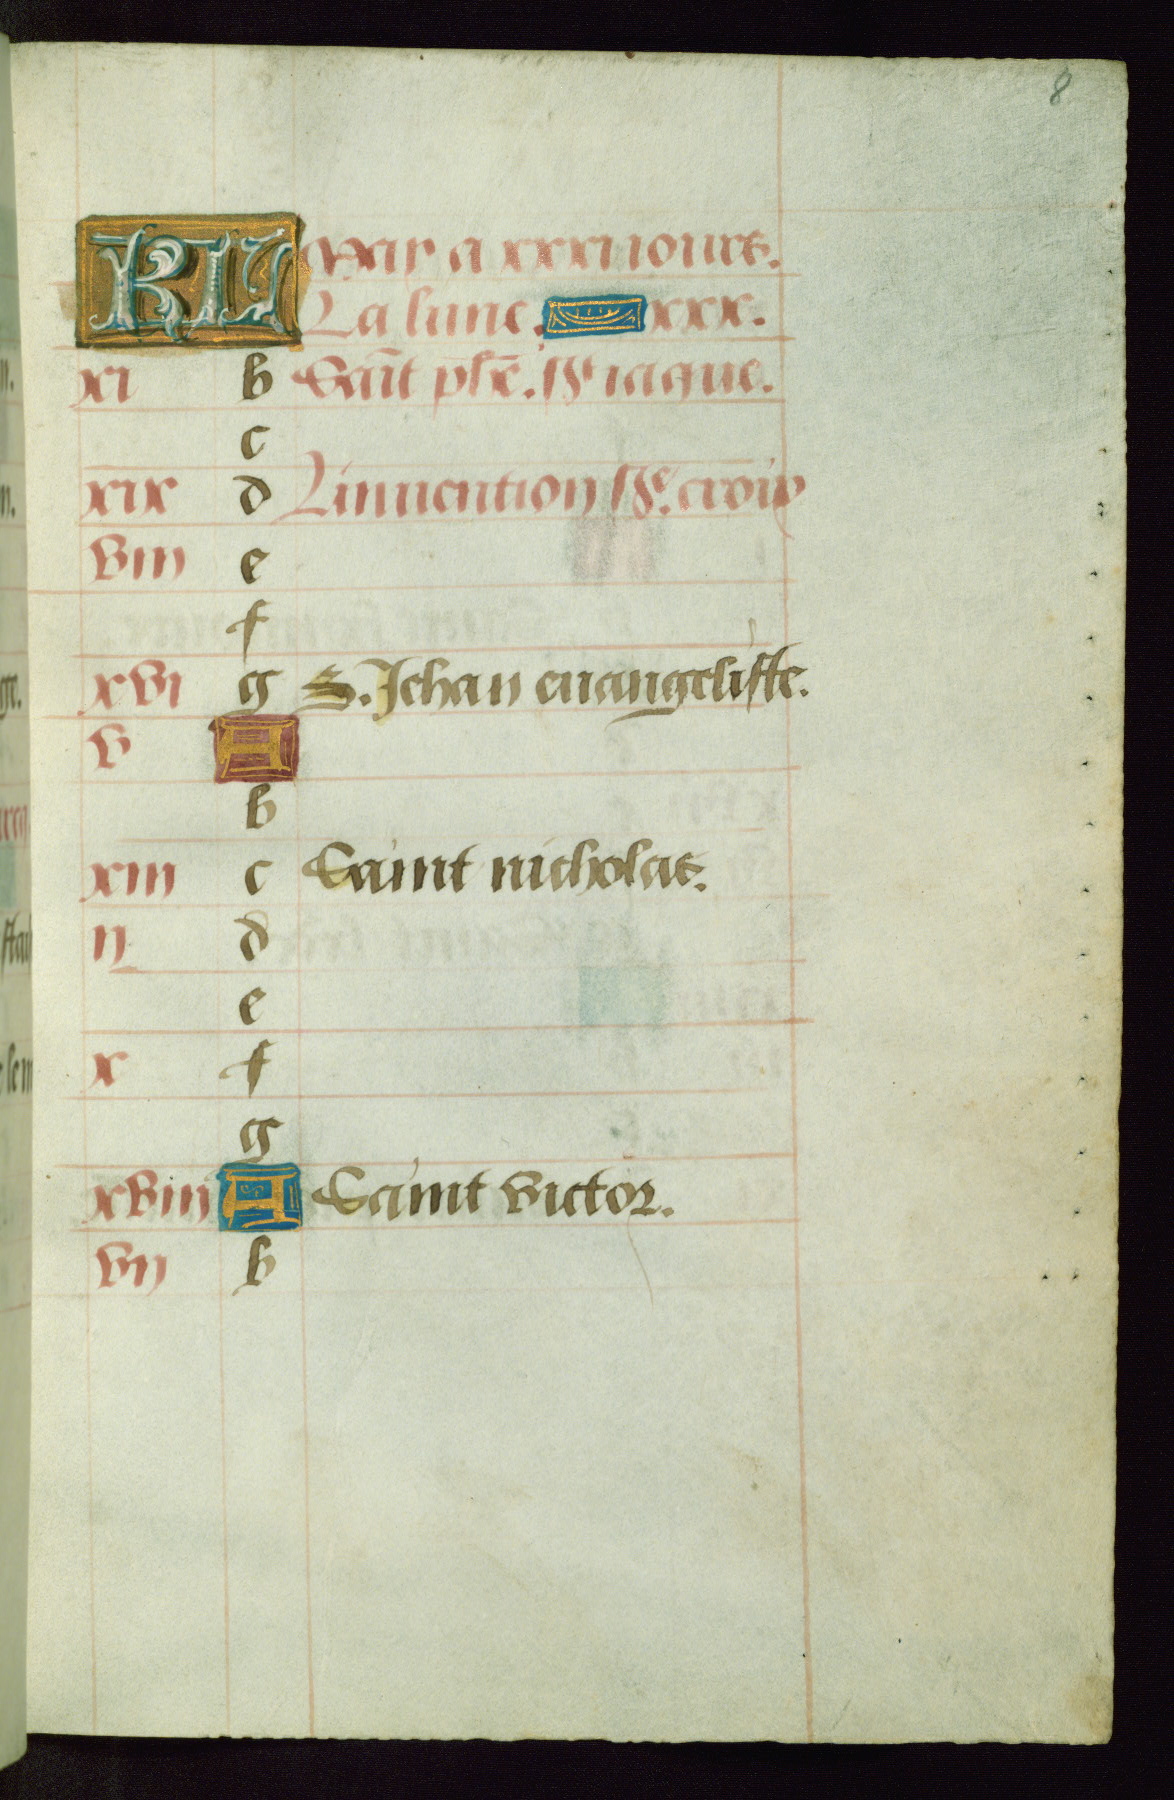 8
KL May a xxxi iours.
La lune. xxx.
xi b Sai͂t phẽ. Sᵗ iaque.
c
xix d Linuention Sᵗᵉ. croix
viii e
f
xvi g S. Jehan euangeliste.
v A
b
xiii c Saint nicholas.
ii d
e
x f
g
xviii A Saint victor.
vii b